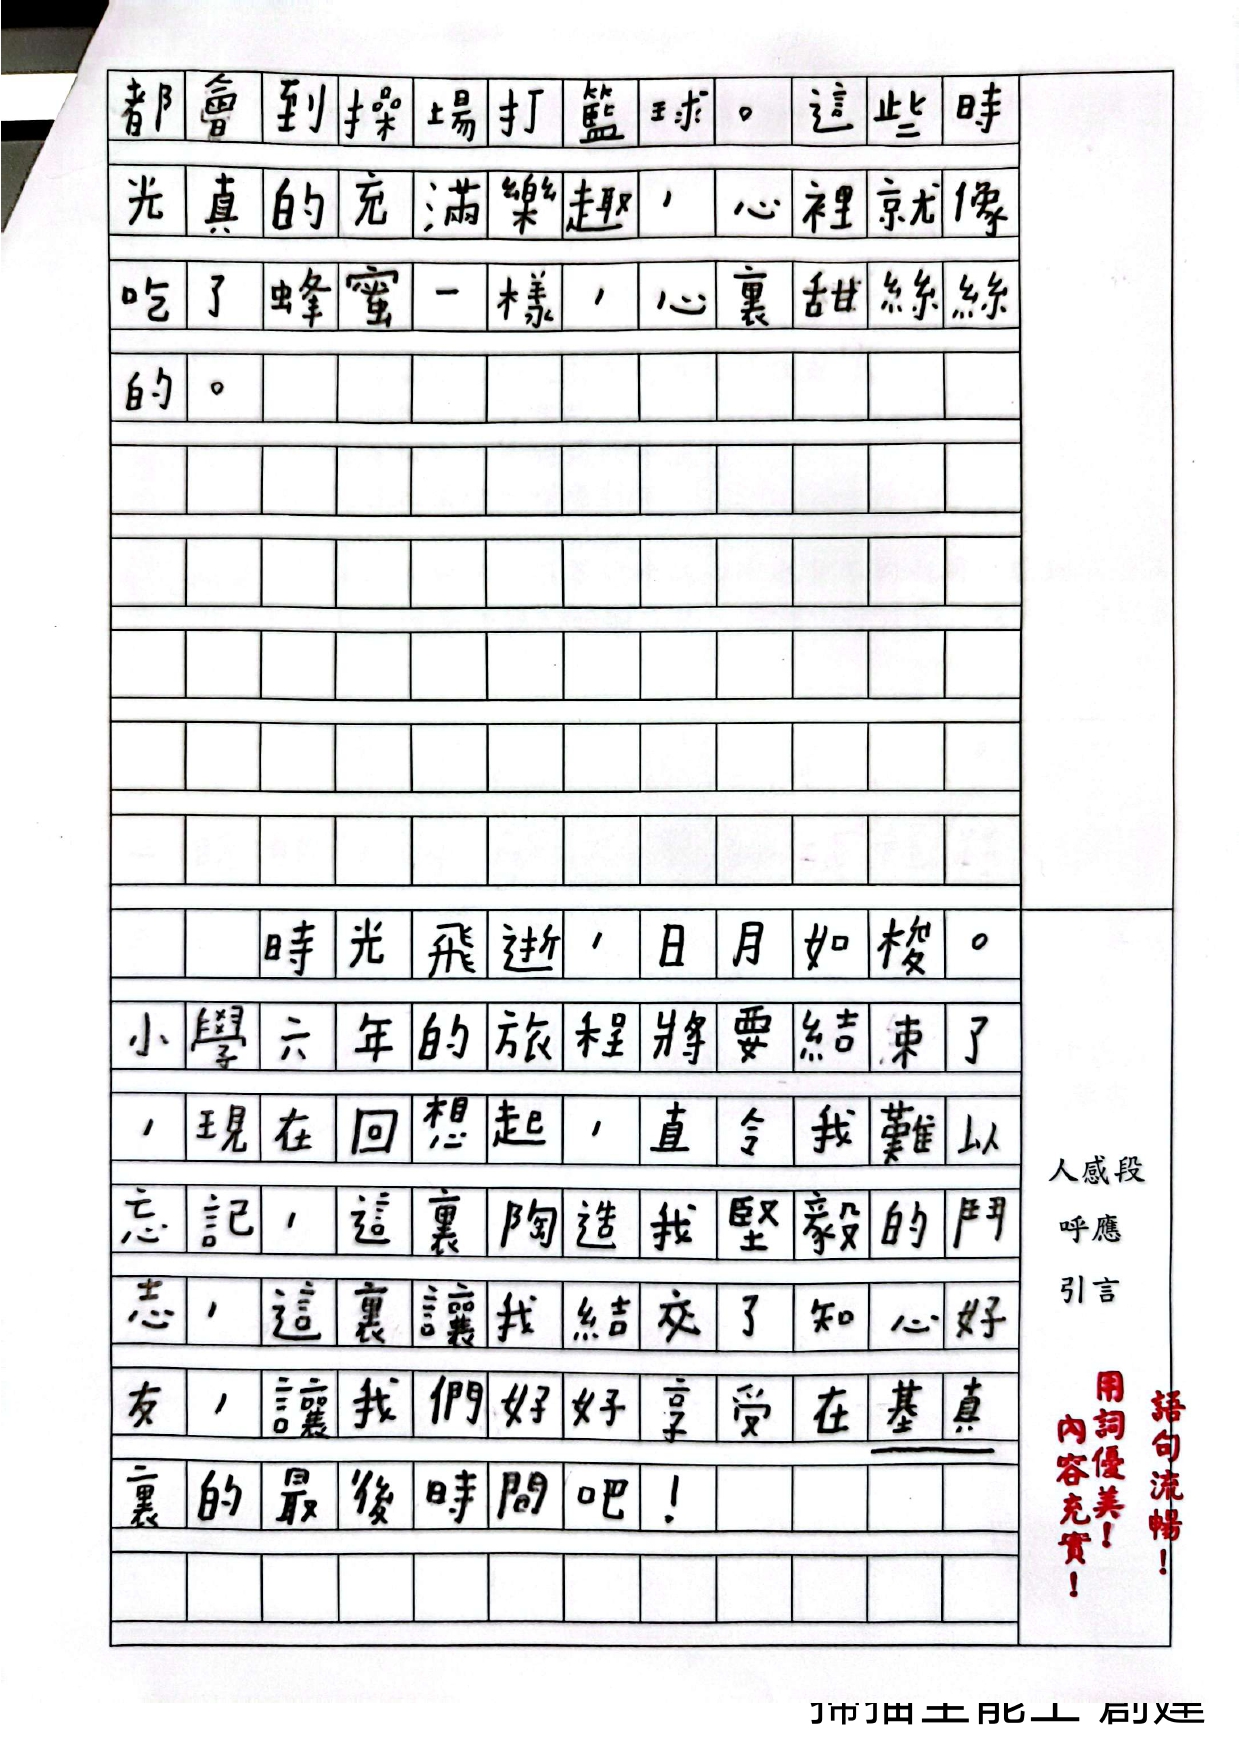 都會到操場打籃球。這些時
光真的充滿樂趣，心裡就像
吃了蜂蜜一樣，心裏甜絲絲
的。
時光飛逝，日月如梭。
小學六年的旅程將要結束了
，現在回想起，直令我難以
忘記，這裏陶造我堅毅的鬥
志，這裏讓我結交了知心好
友，讓我們好好享受在基真
裏的最後時間吧！
人感段
呼應
引言
語句流暢！
用詞優美！
內容充實！
掃描全能王 創建